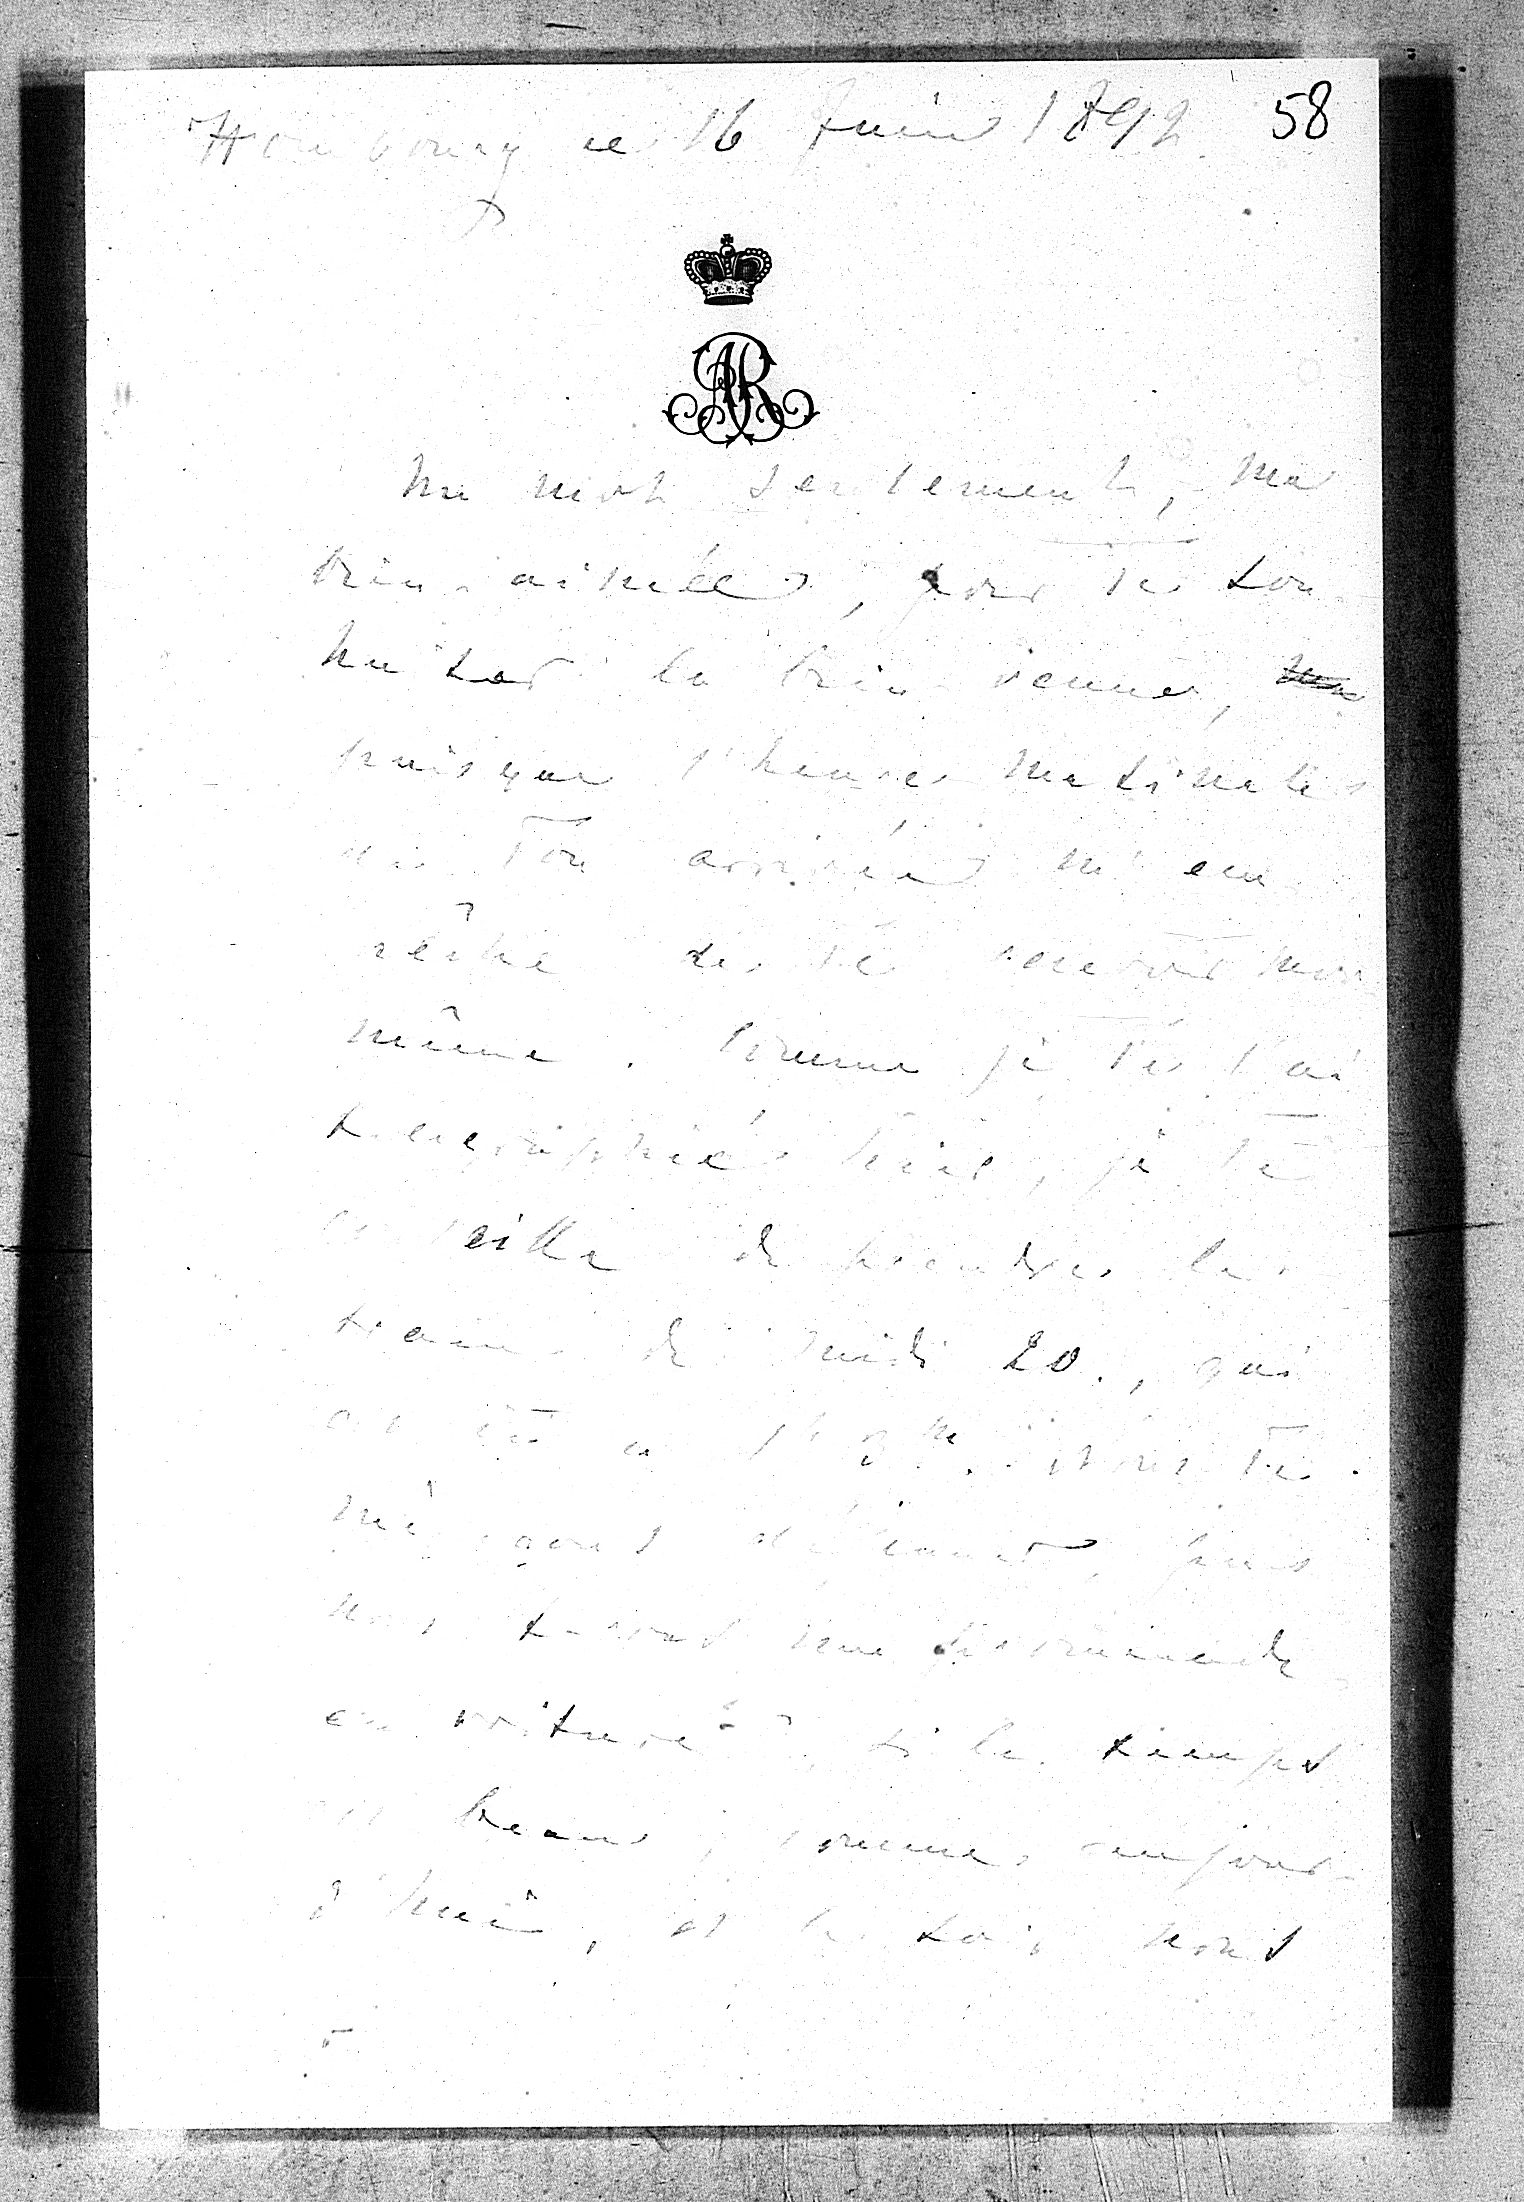 Hombourg ce 16 Juin 1892 58
Un mot seulement, ma
bien-aimée, pour te sou-
haiter la bien venue,
puisque l'heure matinale
de Ton arrivée m'em-
pêche de Te recevoir moi-
même. Comme je Te l'ai
télégraphié hier, je Te
conseille de prendre le
train de midi 20., qui
est ici à 1h 2m. Nous Te
déjeuner, puis
nous ferons une promenade
en voiture, si le temps
est beau, comme aujour-
d'hui, et le soir nous